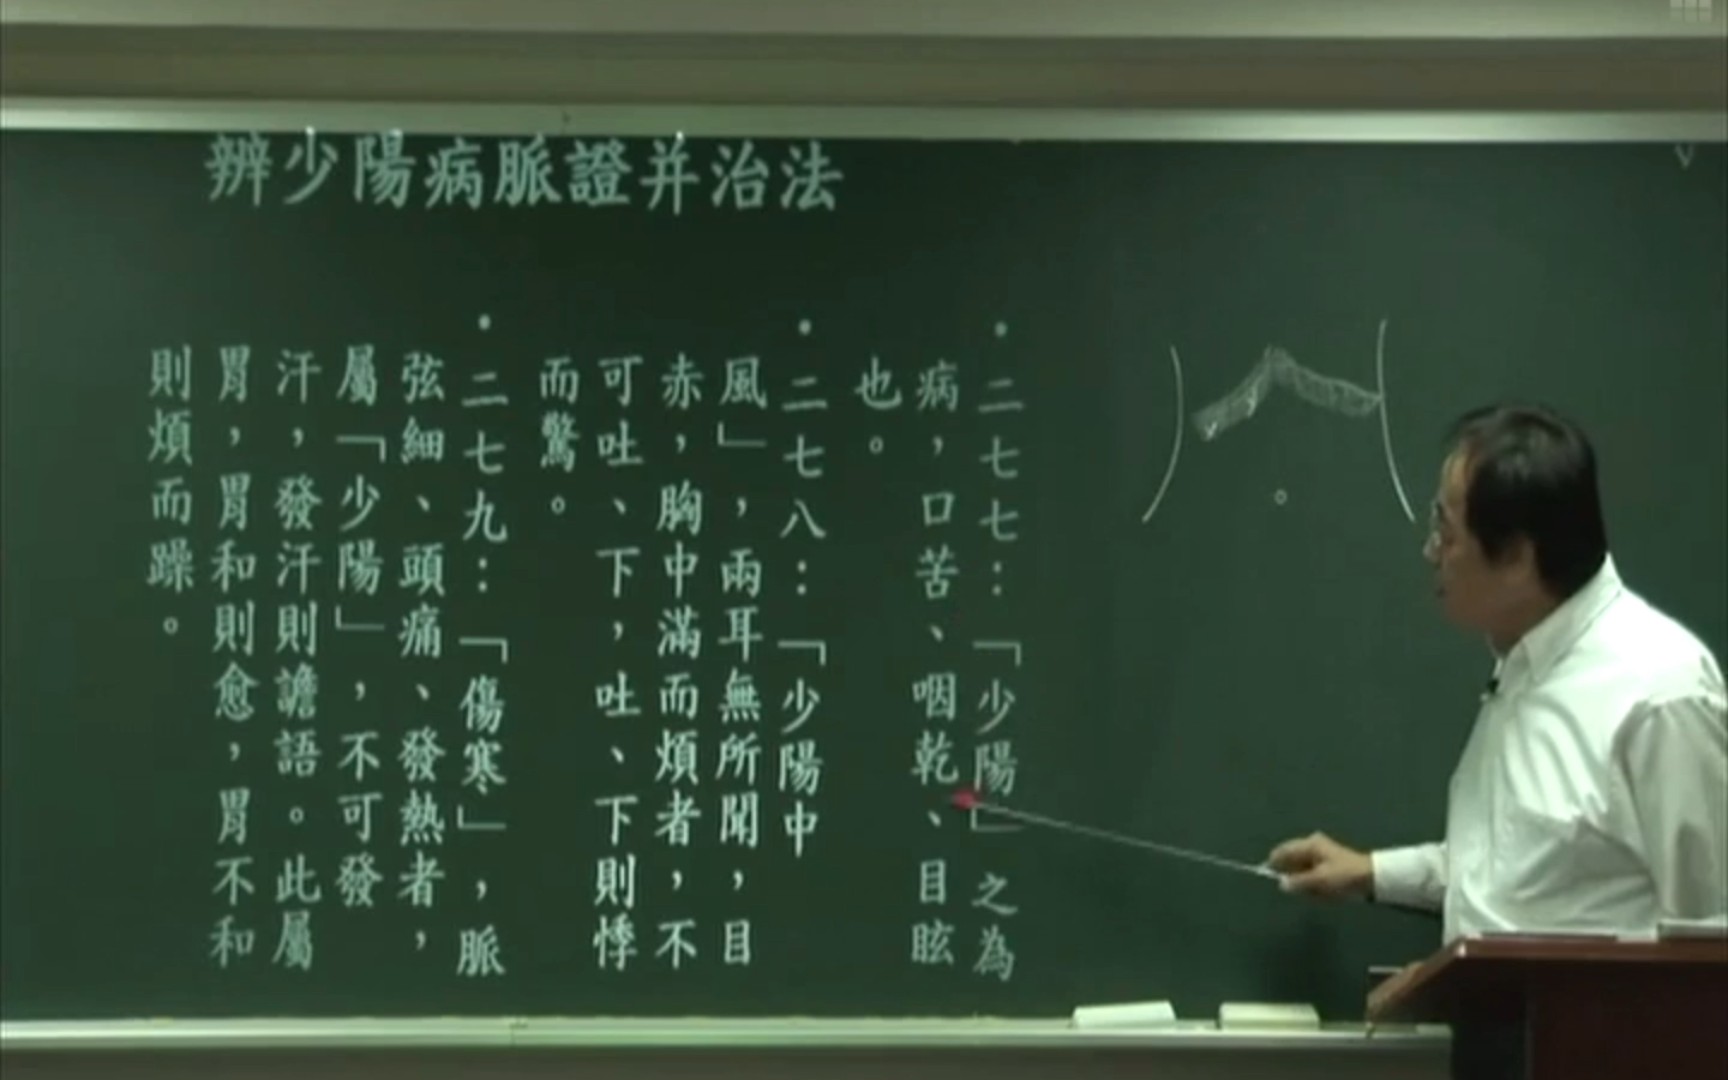 辨少陽病脈證并治法
・二七七：「少陽」之為
病，口苦、咽乾、目眩
也。
・二七八：「少陽中
風」，兩耳無所聞，目
赤，胸中滿而煩者，不
可吐、下，吐、下則悸
而驚。
・二七九：「傷寒」，脈
弦細、頭痛、發熱者，
屬「少陽」，不可發
汗，發汗則譫語。此屬
胃，胃和則愈，胃不和
則煩而躁。